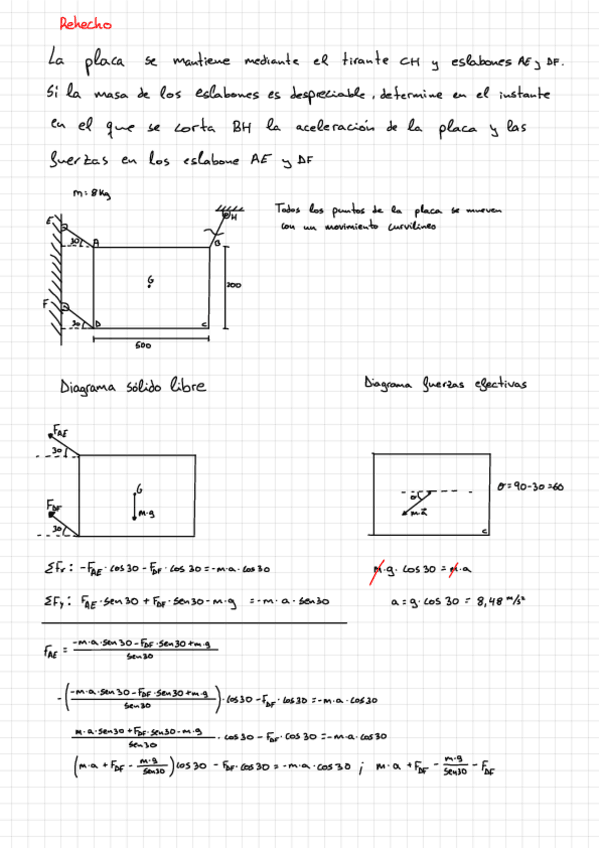 Rehecho
La placa se mantiene mediante el tirante CH y eslabones AE y DF.
Si la masa de los eslabones es despreciable, determine en el instante
en el que se corta BH la aceleración de la placa y las
fuerzas en los eslabone AE y DF
m=8kg
Todos los puntos de la placa se mueven
con un movimiento curvilineo
E
H
30
A
B
G
200
F
30
D
C
500
Diagrama sólido libre
Diagrama fuerzas efectivas
F_AE
30
G
m·g
F_DF
30
θ
m·a⃗
c
θ=90-30=60
ΣFx: -F_AE·cos30 - F_DF·cos 30 = -m·a·cos30
m·g·cos30 = m·a
ΣFy: F_AE·sen30 + F_DF·sen30 - m·g = -m·a·sen30
a = g·cos 30 = 8,48 m/s²
F_AE = (-m·a·sen30 - F_DF·sen30 + m·g) / sen30
-((-m·a·sen30 - F_DF·sen30 + m·g) / sen30)·cos30 - F_DF·cos30 = -m·a·cos30
(m·a·sen30 + F_DF·sen30 - m·g) / sen30 · cos30 - F_DF·cos30 = -m·a·cos30
(m·a + F_DF - m·g/sen30) cos30 - F_DF·cos30 = -m·a·cos30 ; m·a + F_DF - m·g/sen30 - F_DF